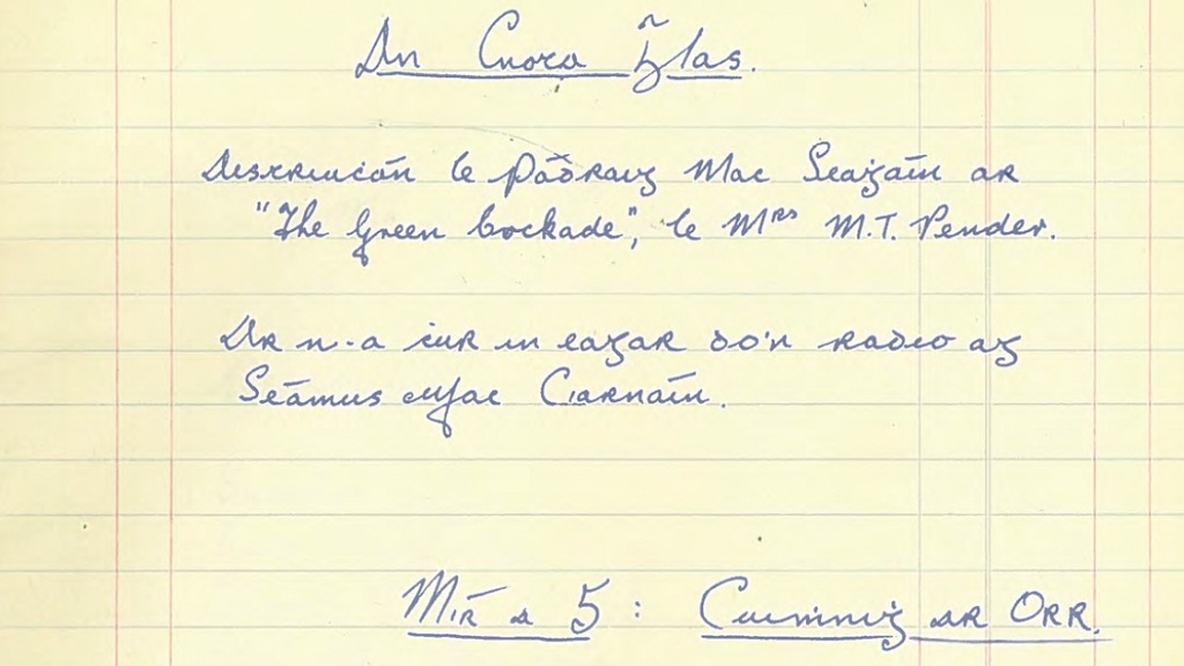 An Cnota Glas.
Aistriúċán le Pádraig Mac Seaġáin ar
"The Green Cockade", le Mrs M.T. Pender.
Ar n-a ċur in eagar do'n radio ag
Séamus Mac Ciarnáin.
Mír a 5: Cuiṁniġ ar Orr.